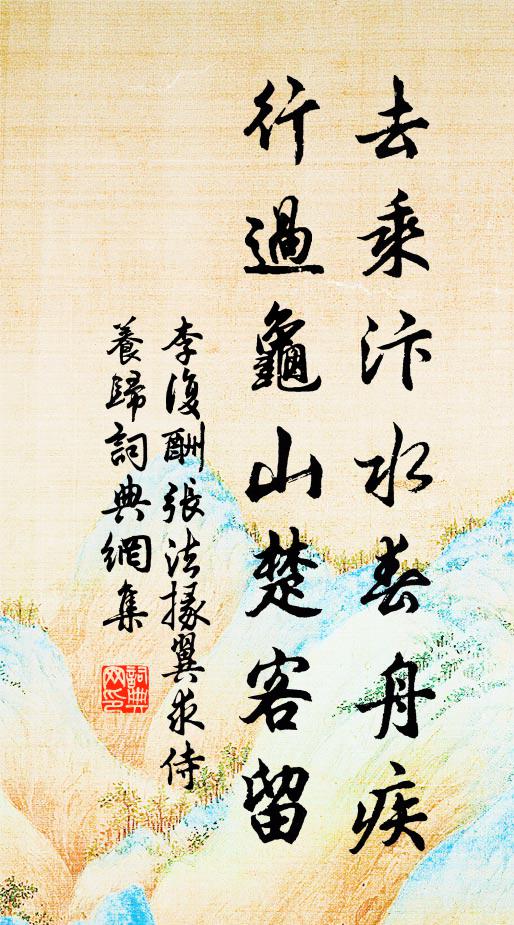 去乘汴水春舟疾
行過龜山楚客留
李復酬張法掾翼求侍
養歸詞典網集
詞典
网印